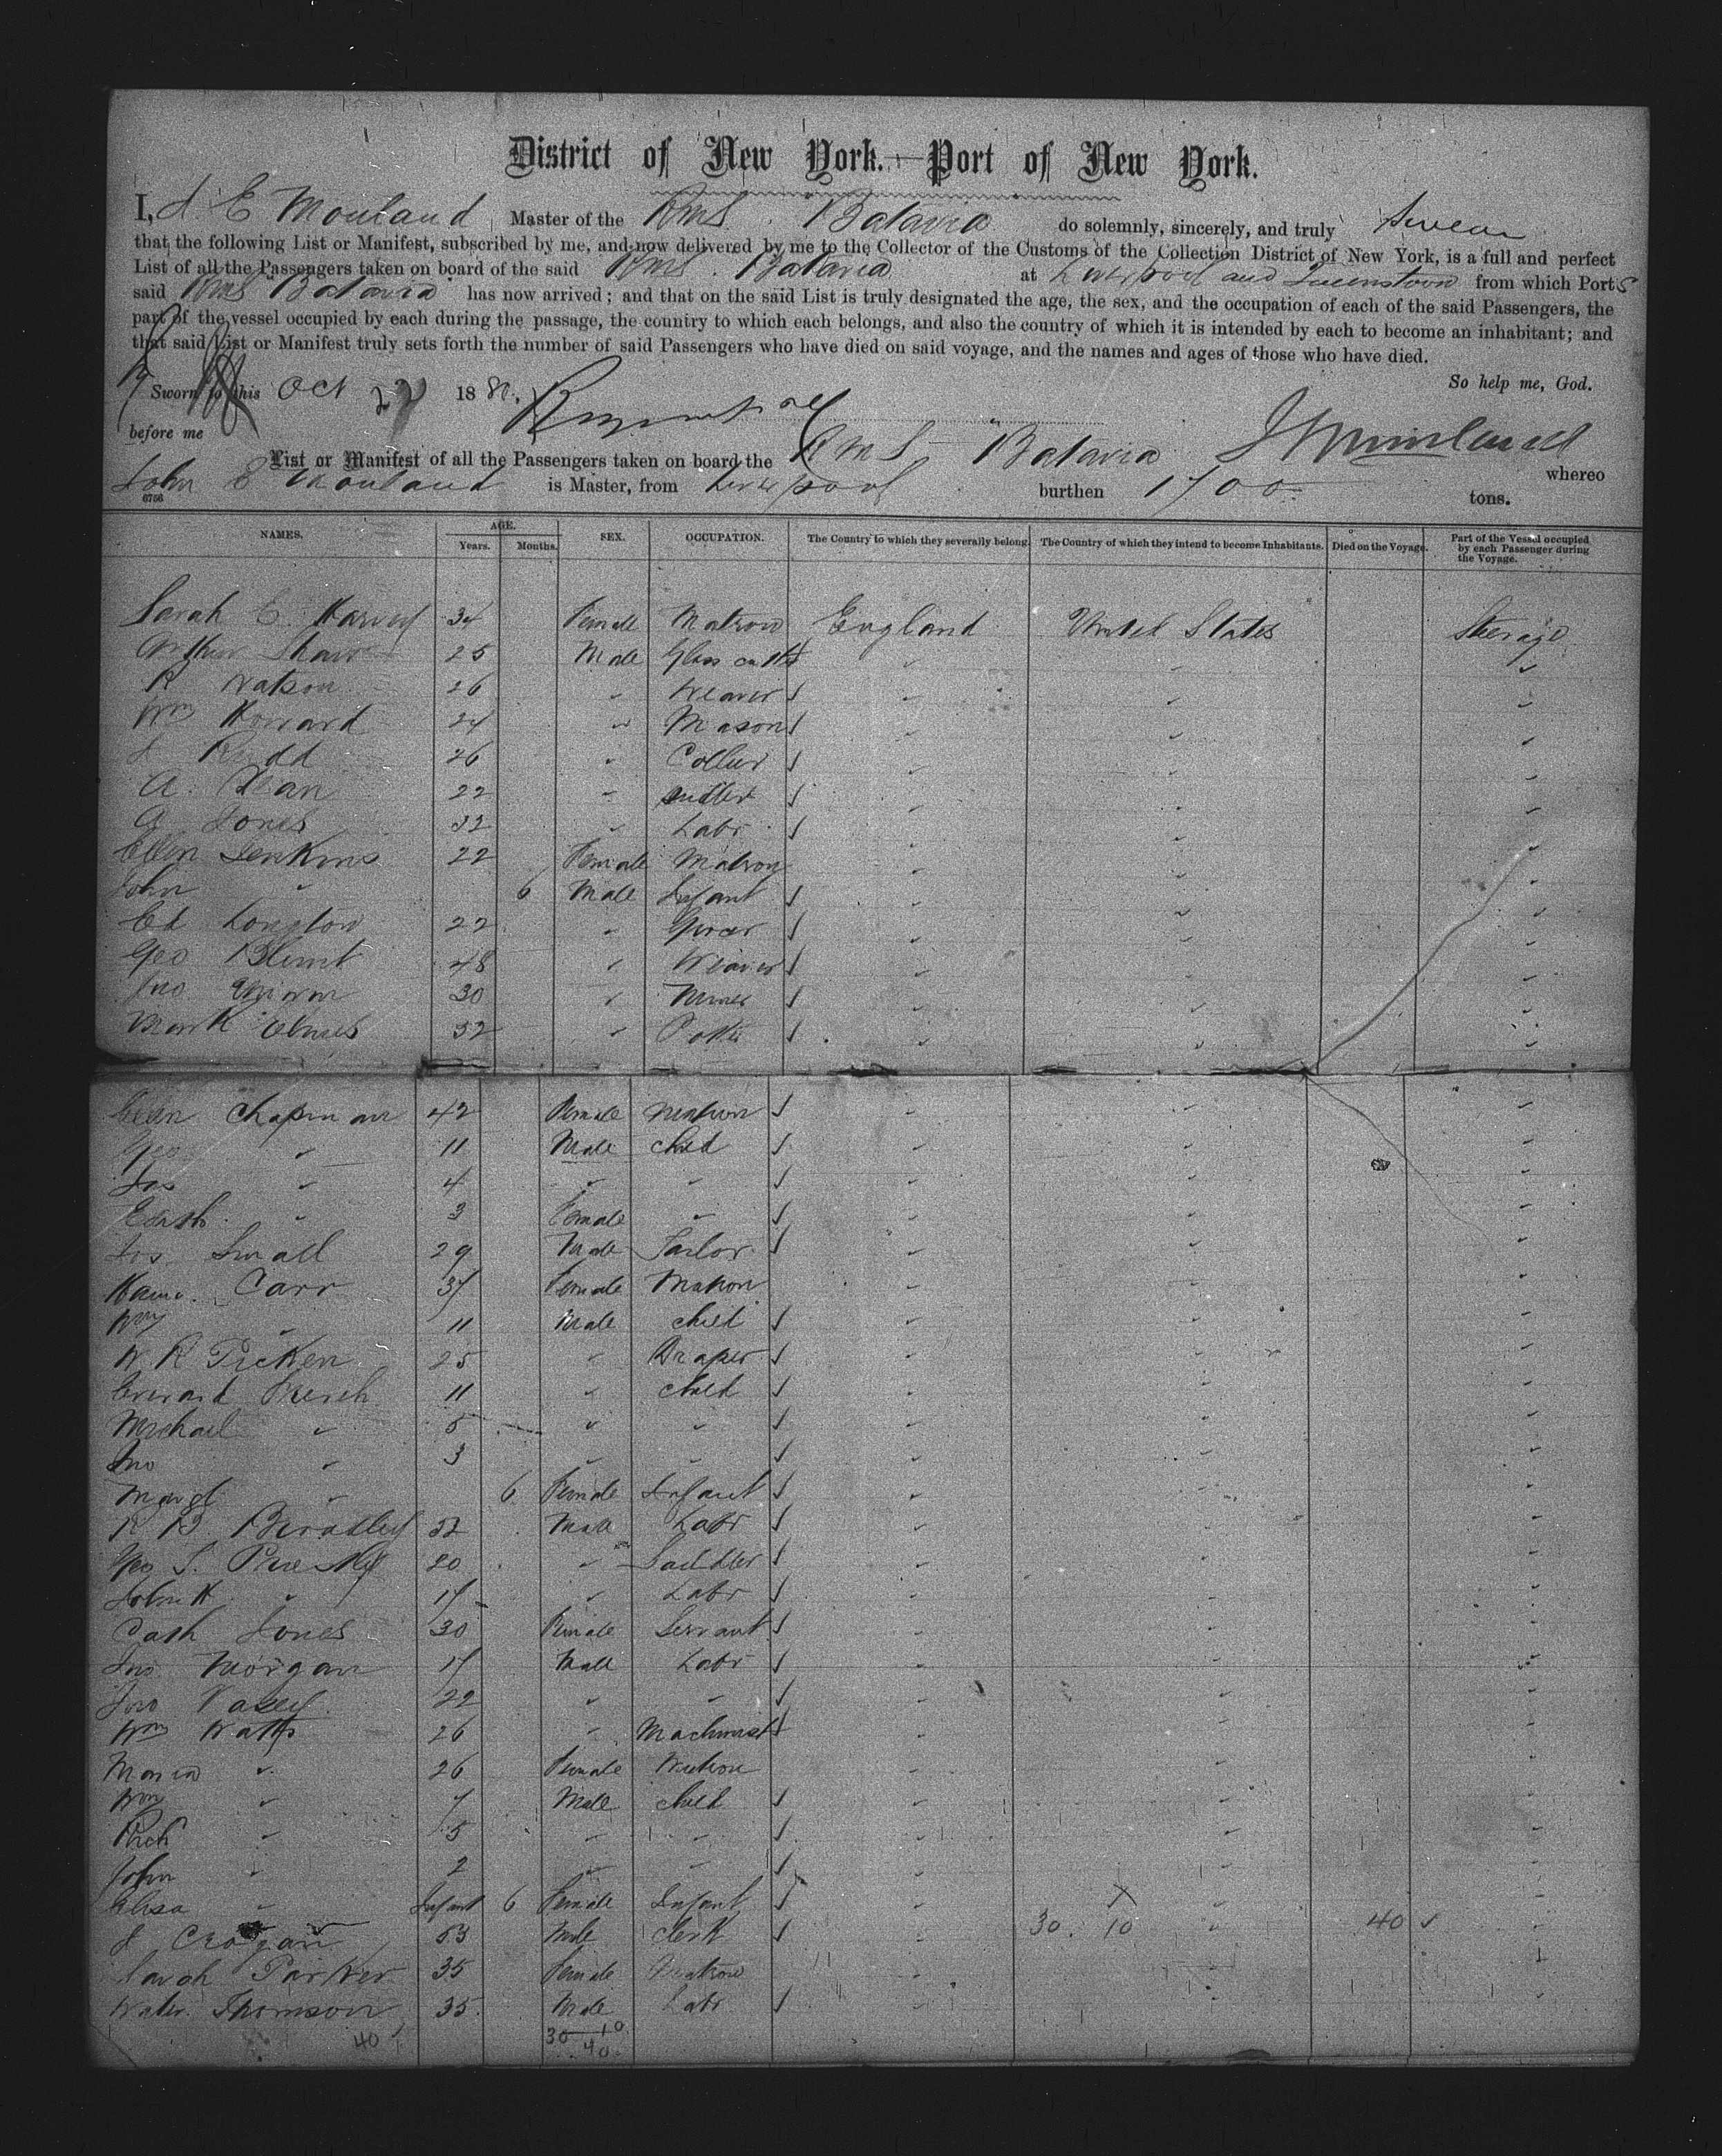 District of New York.—Port of New York.
I, J. E Mouland Master of the RMS. Batavia do solemnly, sincerely, and truly Swear
that the following List or Manifest, subscribed by me, and now delivered by me to the Collector of the Customs of the Collection District of New York, is a full and perfect
List of all the Passengers taken on board of the said RMS. Batavia at Liverpool and Queenstown from which Ports
said RMS Batavia has now arrived; and that on the said List is truly designated the age, the sex, and the occupation of each of the said Passengers, the
part of the vessel occupied by each during the passage, the country to which each belongs, and also the country of which it is intended by each to become an inhabitant; and
that said List or Manifest truly sets forth the number of said Passengers who have died on said voyage, and the names and ages of those who have died.
So help me, God.
Sworn to this Oct 22 1880.
before me
List or Manifest of all the Passengers taken on board the RMS Batavia whereo
John E Mouland is Master, from Liverpool burthen 1700 tons.
6756
NAMES. AGE. Years. Months. SEX. OCCUPATION. The Country to which they severally belong. The Country of which they intend to become Inhabitants. Died on the Voyage. Part of the Vessel occupied by each Passenger during the Voyage.
Sarah E. Harvey 34 Female Matron England United States Steerage
Arthur Shaw 25 Male Glass cutter
R Watson 26 " Weaver
Wm Howard 24 " Mason
J Rudd 26 " Collier
A. Dean 22 "
A Jones 32 " Labr
Ellen Jenkins 22 Female Matron
John " 6 Male Infant
Ed Longton 22 " Grocer
Geo Blunt 48 " Weaver
Jno 30 " Miner
Mark 32 " Potter
Ellen Chapman 42 Female Matron
Geo " 11 Male child
Jas " 4 " "
" 3 Female "
Jos Small 29 Male Tailor
Carr 37 Female Matron
Wm " 11 Male child
W R Picken 25 " Draper
11 " child
Michael " 5 " "
Jno " 3 " "
Margt " 6 Female Infant
R B 32 Male Labr
Geo S. 20 " Saddler
John H " 17 " Labr
Cath Jones 30 Female Servant
Jno Morgan 17 Male Labr
Jno 22 " "
Wm Watts 26 " Machinist
Maria " 26 Female Matron
Wm " 7 Male child
Rich " 5 " "
John " 2 " "
Eliza " Infant 6 Female Infant
J Crogan 53 Male Clerk 30. 10 40
Sarah Parker 35 Female Matron
Walter Thomson 35. Male Labr
40 30 10
40